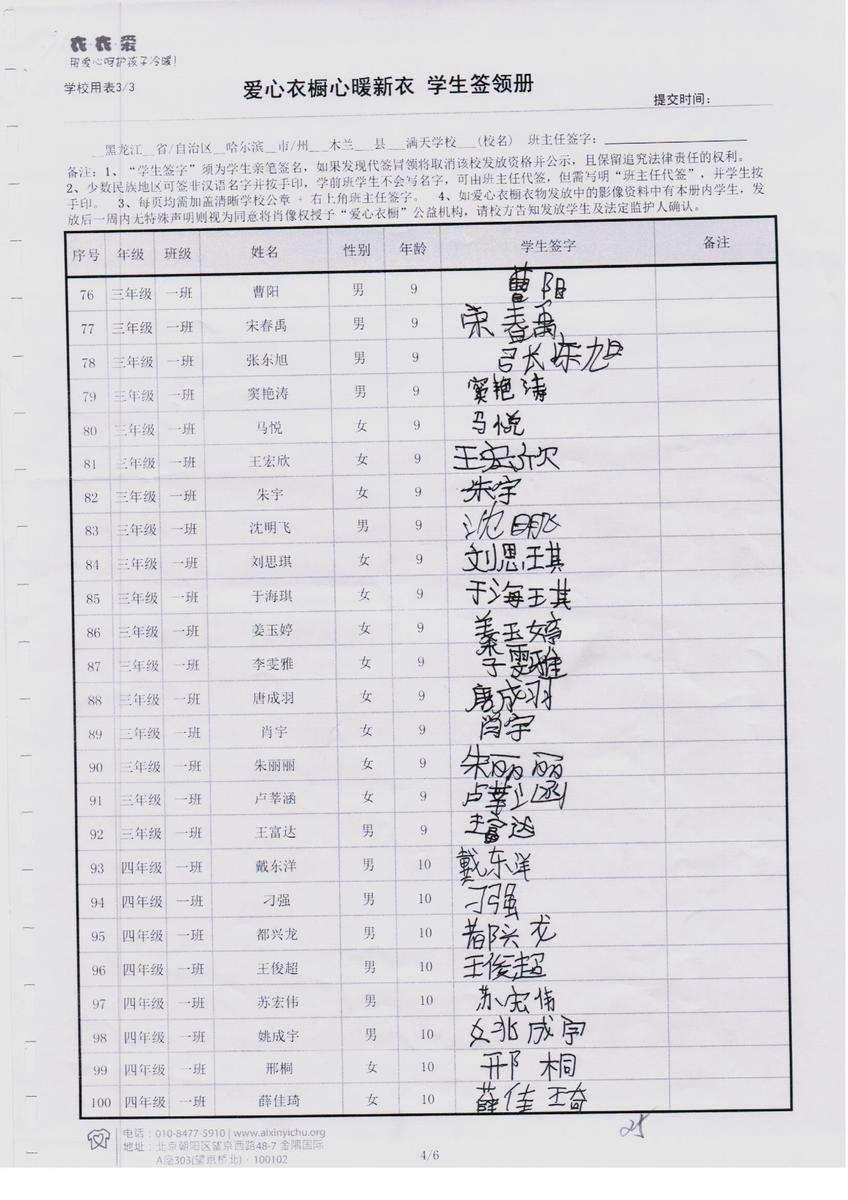 衣·衣·爱
用爱心呵护孩子冷暖!
学校用表3/3
爱心衣橱心暖新衣 学生签领册
提交时间:
__黑龙江__省/自治区__哈尔滨__市/州__木兰__县__满天学校__(校名) 班主任签字:
备注:1、“学生签字”须为学生亲笔签名,如果发现代签冒领将取消该校发放资格并公示,且保留追究法律责任的权利。
2、少数民族地区可签非汉语名字并按手印,学前班学生不会写名字,可由班主任代签,但需写明“班主任代签”,并学生按
手印。 3、每页均需加盖清晰学校公章 + 右上角班主任签字。 4、如爱心衣橱衣物发放中的影像资料中有本册内学生,发
放后一周内无特殊声明则视为同意将肖像权授予“爱心衣橱”公益机构,请校方告知发放学生及法定监护人确认。
序号 年级 班级 姓名 性别 年龄 学生签字 备注
76 三年级 一班 曹阳 男 9 曹阳
77 三年级 一班 宋春禹 男 9 宋春禹
78 三年级 一班 张东旭 男 9 张东旭
79 三年级 一班 窦艳涛 男 9 窦艳涛
80 三年级 一班 马悦 女 9 马悦
81 三年级 一班 王宏欣 女 9 王宏欣
82 三年级 一班 朱宇 女 9 朱宇
83 三年级 一班 沈明飞 男 9 沈明飞
84 三年级 一班 刘思琪 女 9 刘思琪
85 三年级 一班 于海琪 女 9 于海琪
86 三年级 一班 姜玉婷 女 9 姜玉婷
87 三年级 一班 李雯雅 女 9 李雯雅
88 三年级 一班 唐成羽 女 9 唐成羽
89 三年级 一班 肖宇 女 9 肖宇
90 三年级 一班 朱丽丽 女 9 朱丽丽
91 三年级 一班 卢莘涵 女 9 卢莘涵
92 三年级 一班 王富达 男 9 王富达
93 四年级 一班 戴东洋 男 10 戴东洋
94 四年级 一班 刁强 男 10 刁强
95 四年级 一班 都兴龙 男 10 都兴龙
96 四年级 一班 王俊超 男 10 王俊超
97 四年级 一班 苏宏伟 男 10 苏宏伟
98 四年级 一班 姚成宇 男 10 姚成宇
99 四年级 一班 邢桐 女 10 邢桐
100 四年级 一班 薛佳琦 女 10 薛佳琦
25
电话:010-8477-5910 | www.aixinyichu.org
地址:北京朝阳区望京西路48-7 金隅国际
A座303(望京桥北)·100102
4/6